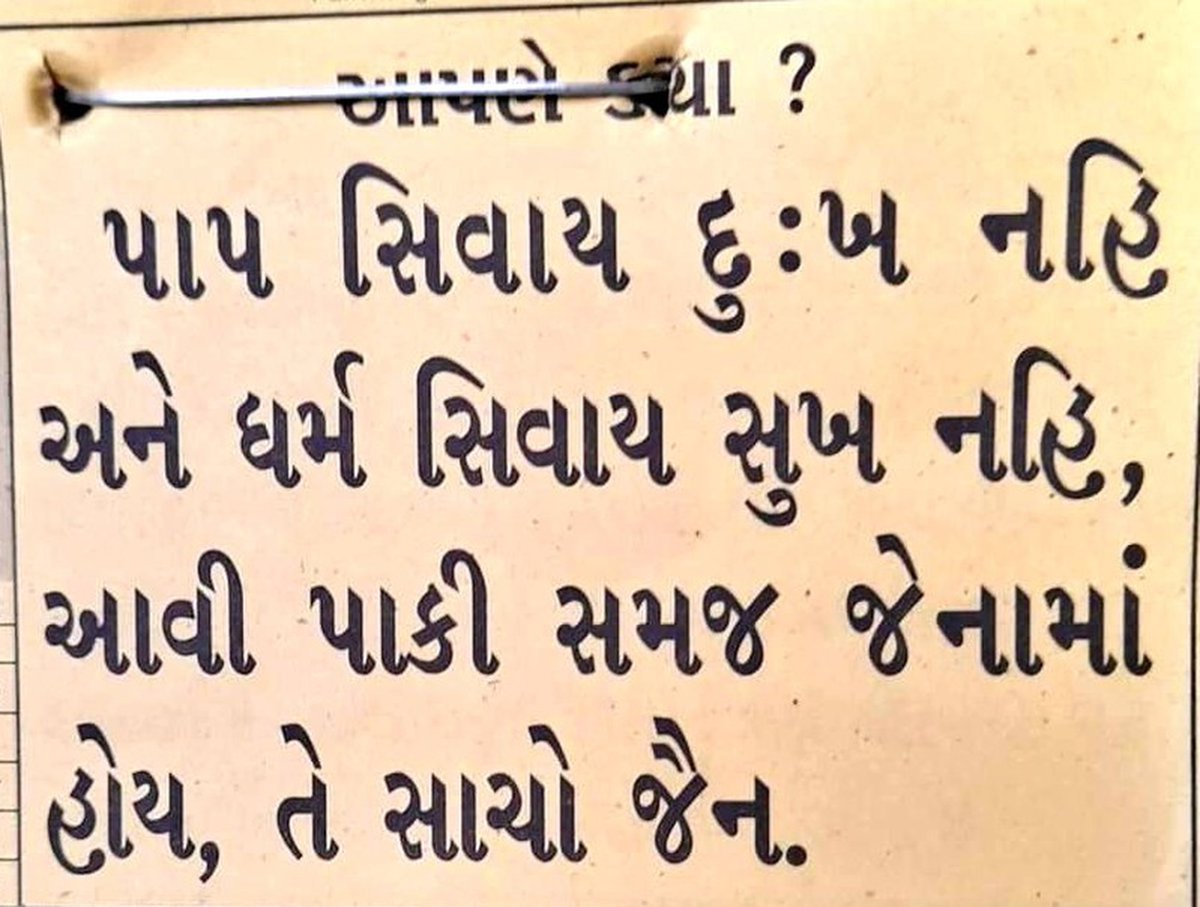 આપણે કયા ?
પાપ સિવાય દુઃખ નહિ
અને ધર્મ સિવાય સુખ નહિ,
આવી પાકી સમજ જેનામાં
હોય, તે સાચો જૈન.